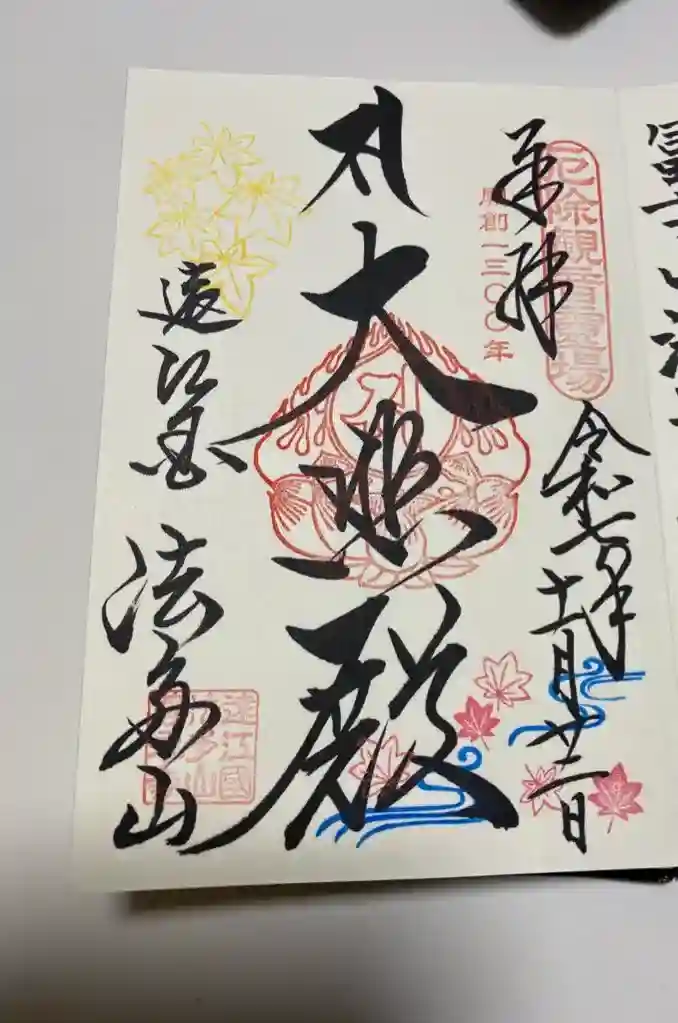 冨士山
厄除観音霊場
奉拝
開創一三〇〇年
令和七年十一月廿二日
大悲殿
遠江国 法多山
遠江國